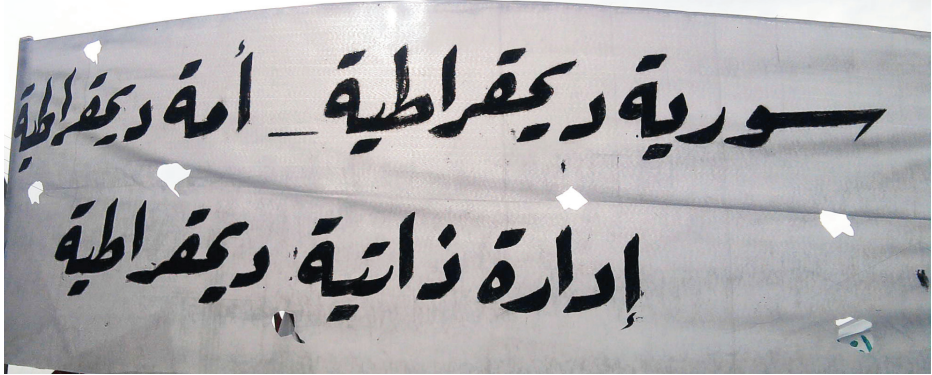 سورية ديمقراطية _ أمة ديمقراطية
إدارة ذاتية ديمقراطية